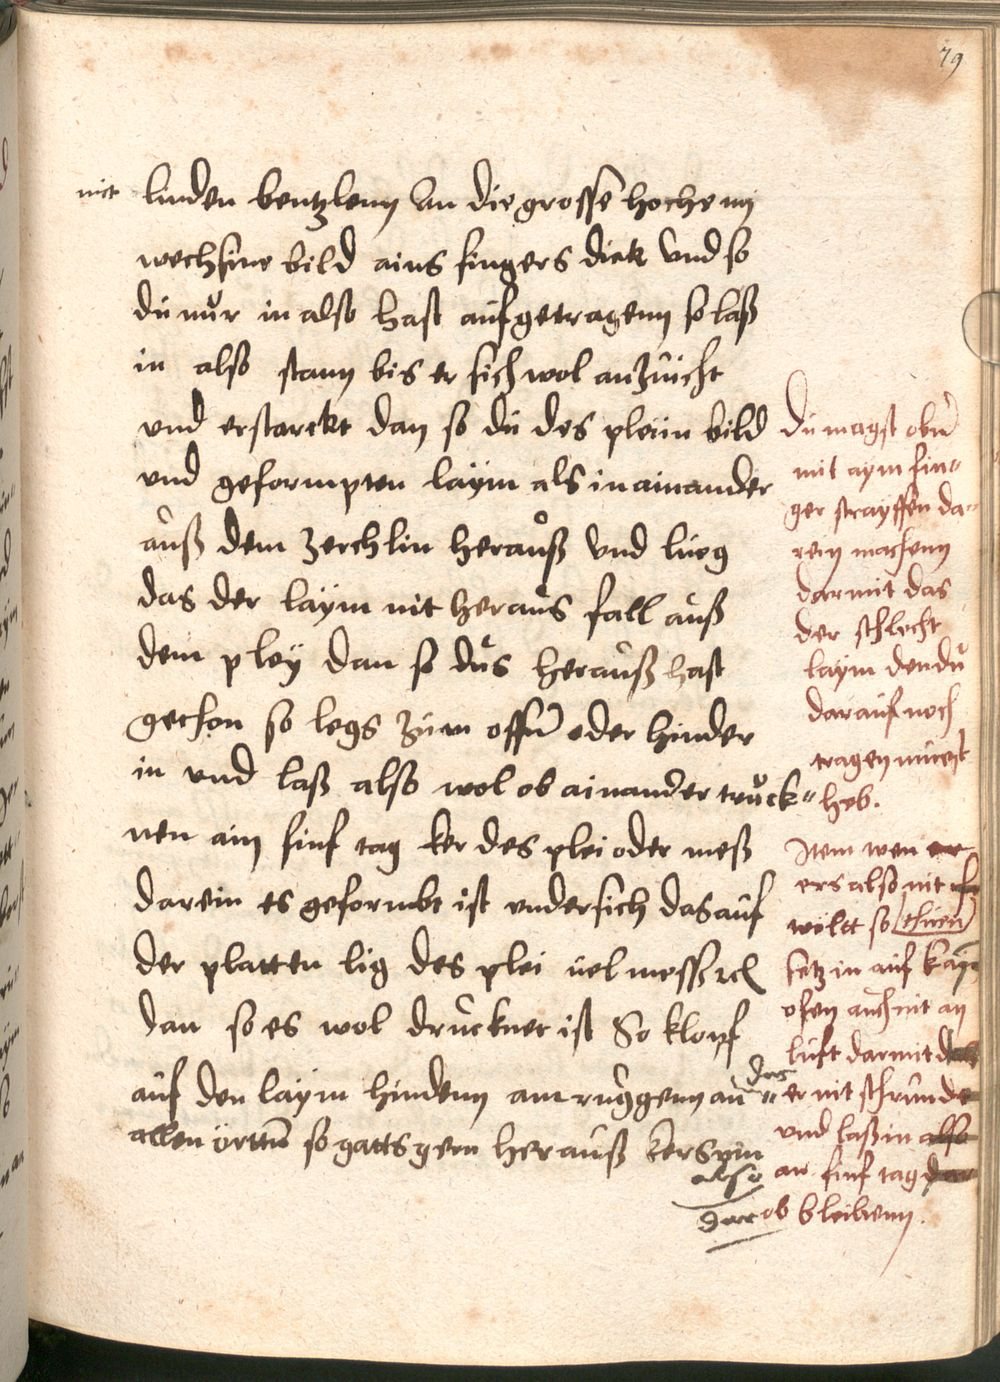 79
mit linden bentzlenn an die grosse hoche nn
wechsine bild ains fingers dick und so
du nůr in also hast aufgetragenn so laß
in also stann bis er sich wol anzücht
und erstarckt dan so du des pleiin bild
und geformpten layᵐ als in ainander
auß dem zerchlin herauß und lueg
das der laym nit heraus fall auß
dem pley dan so dus herauß hast
gethon so legs zum offen oder hinder
in und laß also wol ob ainander truck"
nen ain finf tag ker des plei oder meß
darein es geformbt ist undersich das auf
der platten lig des plei uel messz rc
dan so es wol drucknet ist So klopf
auf den laym hindenn am ruggenn an"
allen örtten so gatts gern herauß kers vm
Du magst oben
mit aym fin"
ger strayffen da"
rein machenn
darmit das
der schlecht
laym den du
darauf noch
tragen muest
heb.
Item wen
ers also nit
wöltt so thuen
setz in auf kayn
ofen auch nit an
luft darmit das
er nit schrunde
und laß in also
an finf tag
dar ob bleibenn.